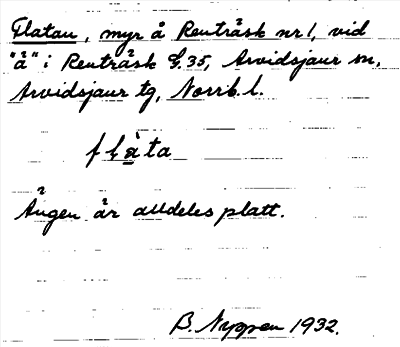 Flatan, myr å Renträsk nr 1, vid
"å" i Renträsk G.35, Arvidsjaur sn,
Arvidsjaur tg, Norrb. l.
flàta
Ängen är alldeles platt.
B. Nyppen 1932.